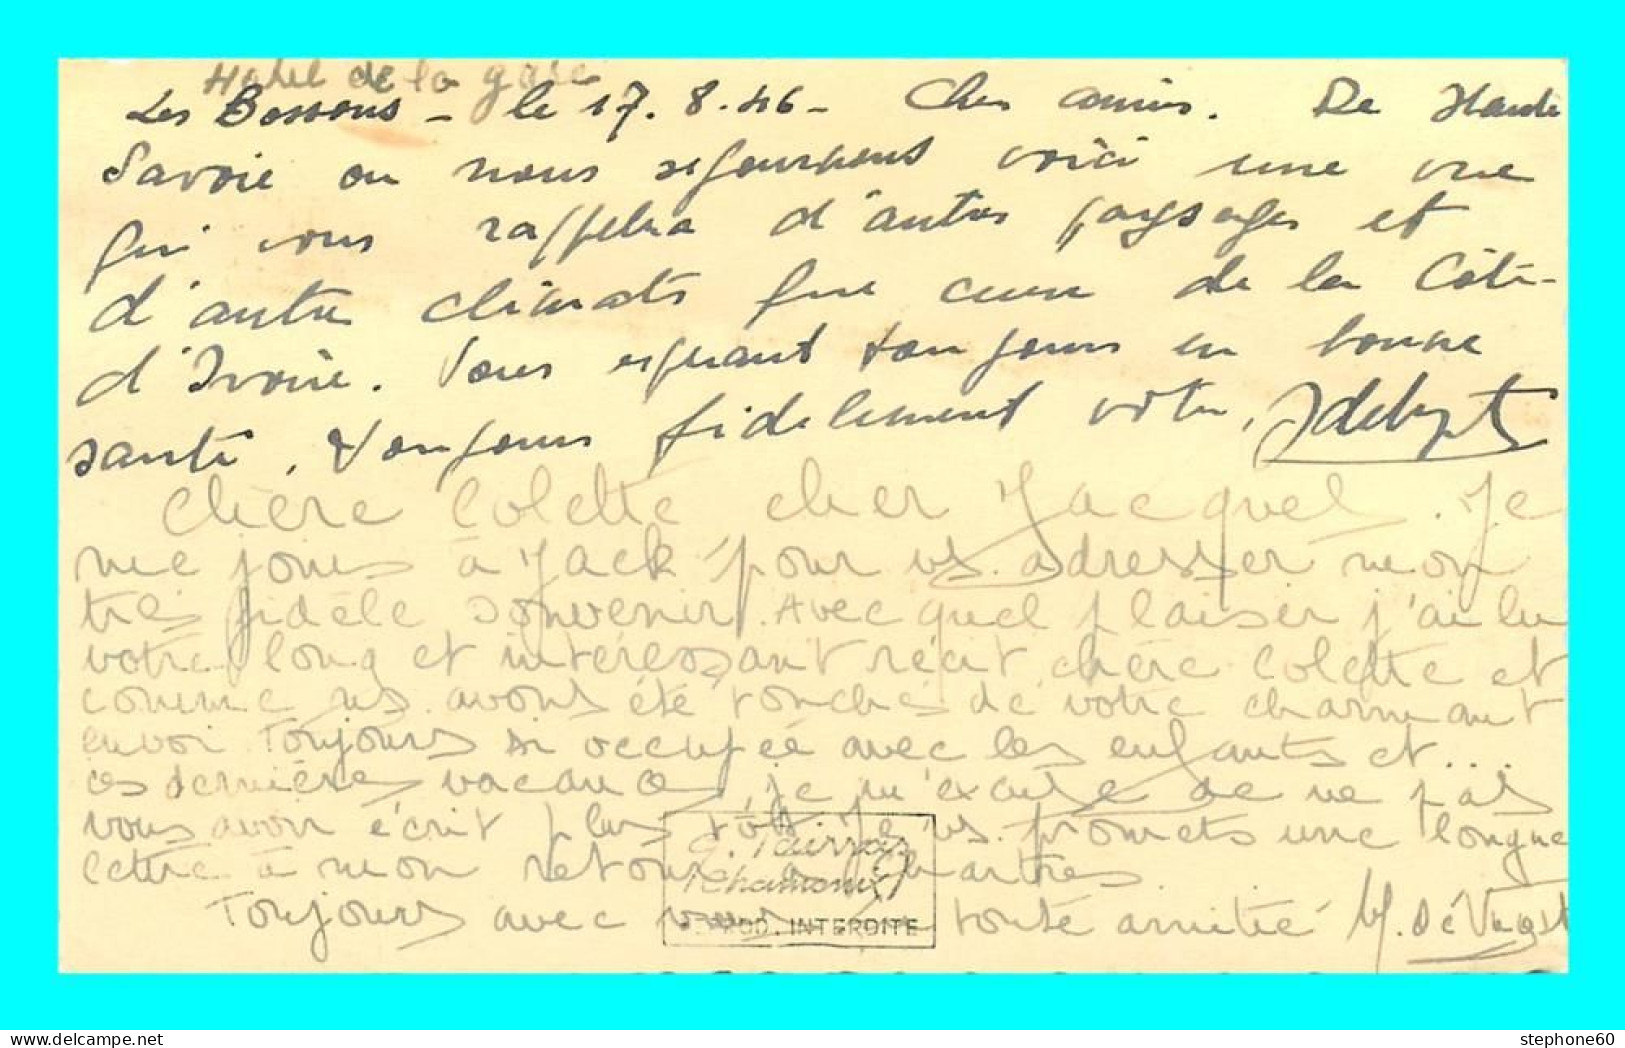 Hotel de la gare
Les Bossons - le 17.8.46 - Chers amis. De Haute
Savoie ou nous séjournons voici une vue
qui vous rappelera d'autres paysages et
d'autres climats que ceux de la Côte-
d'Ivoire. Vous espérant toujours en bonne
santé, toujours fidèlement votre,
Chère Colette cher Jacques. Je
me joins à Jack pour vs. adresser mon
très fidèle souvenir. Avec quel plaisir j'ai lu
votre long et intéressant récit chère Colette et
comme ns. avons été touchés de votre charmant
envoi. Toujours si occupée avec les enfants et...
ces dernières vacances, je m'excuse de ne pas
vous avoir écrit plus tôt. Je vs. promets une longue
lettre à mon retour à Chartres.
Toujours avec vous en toute amitié M. de Vogt
G. Tairraz
Chamonix
REPROD. INTERDITE
stephone60